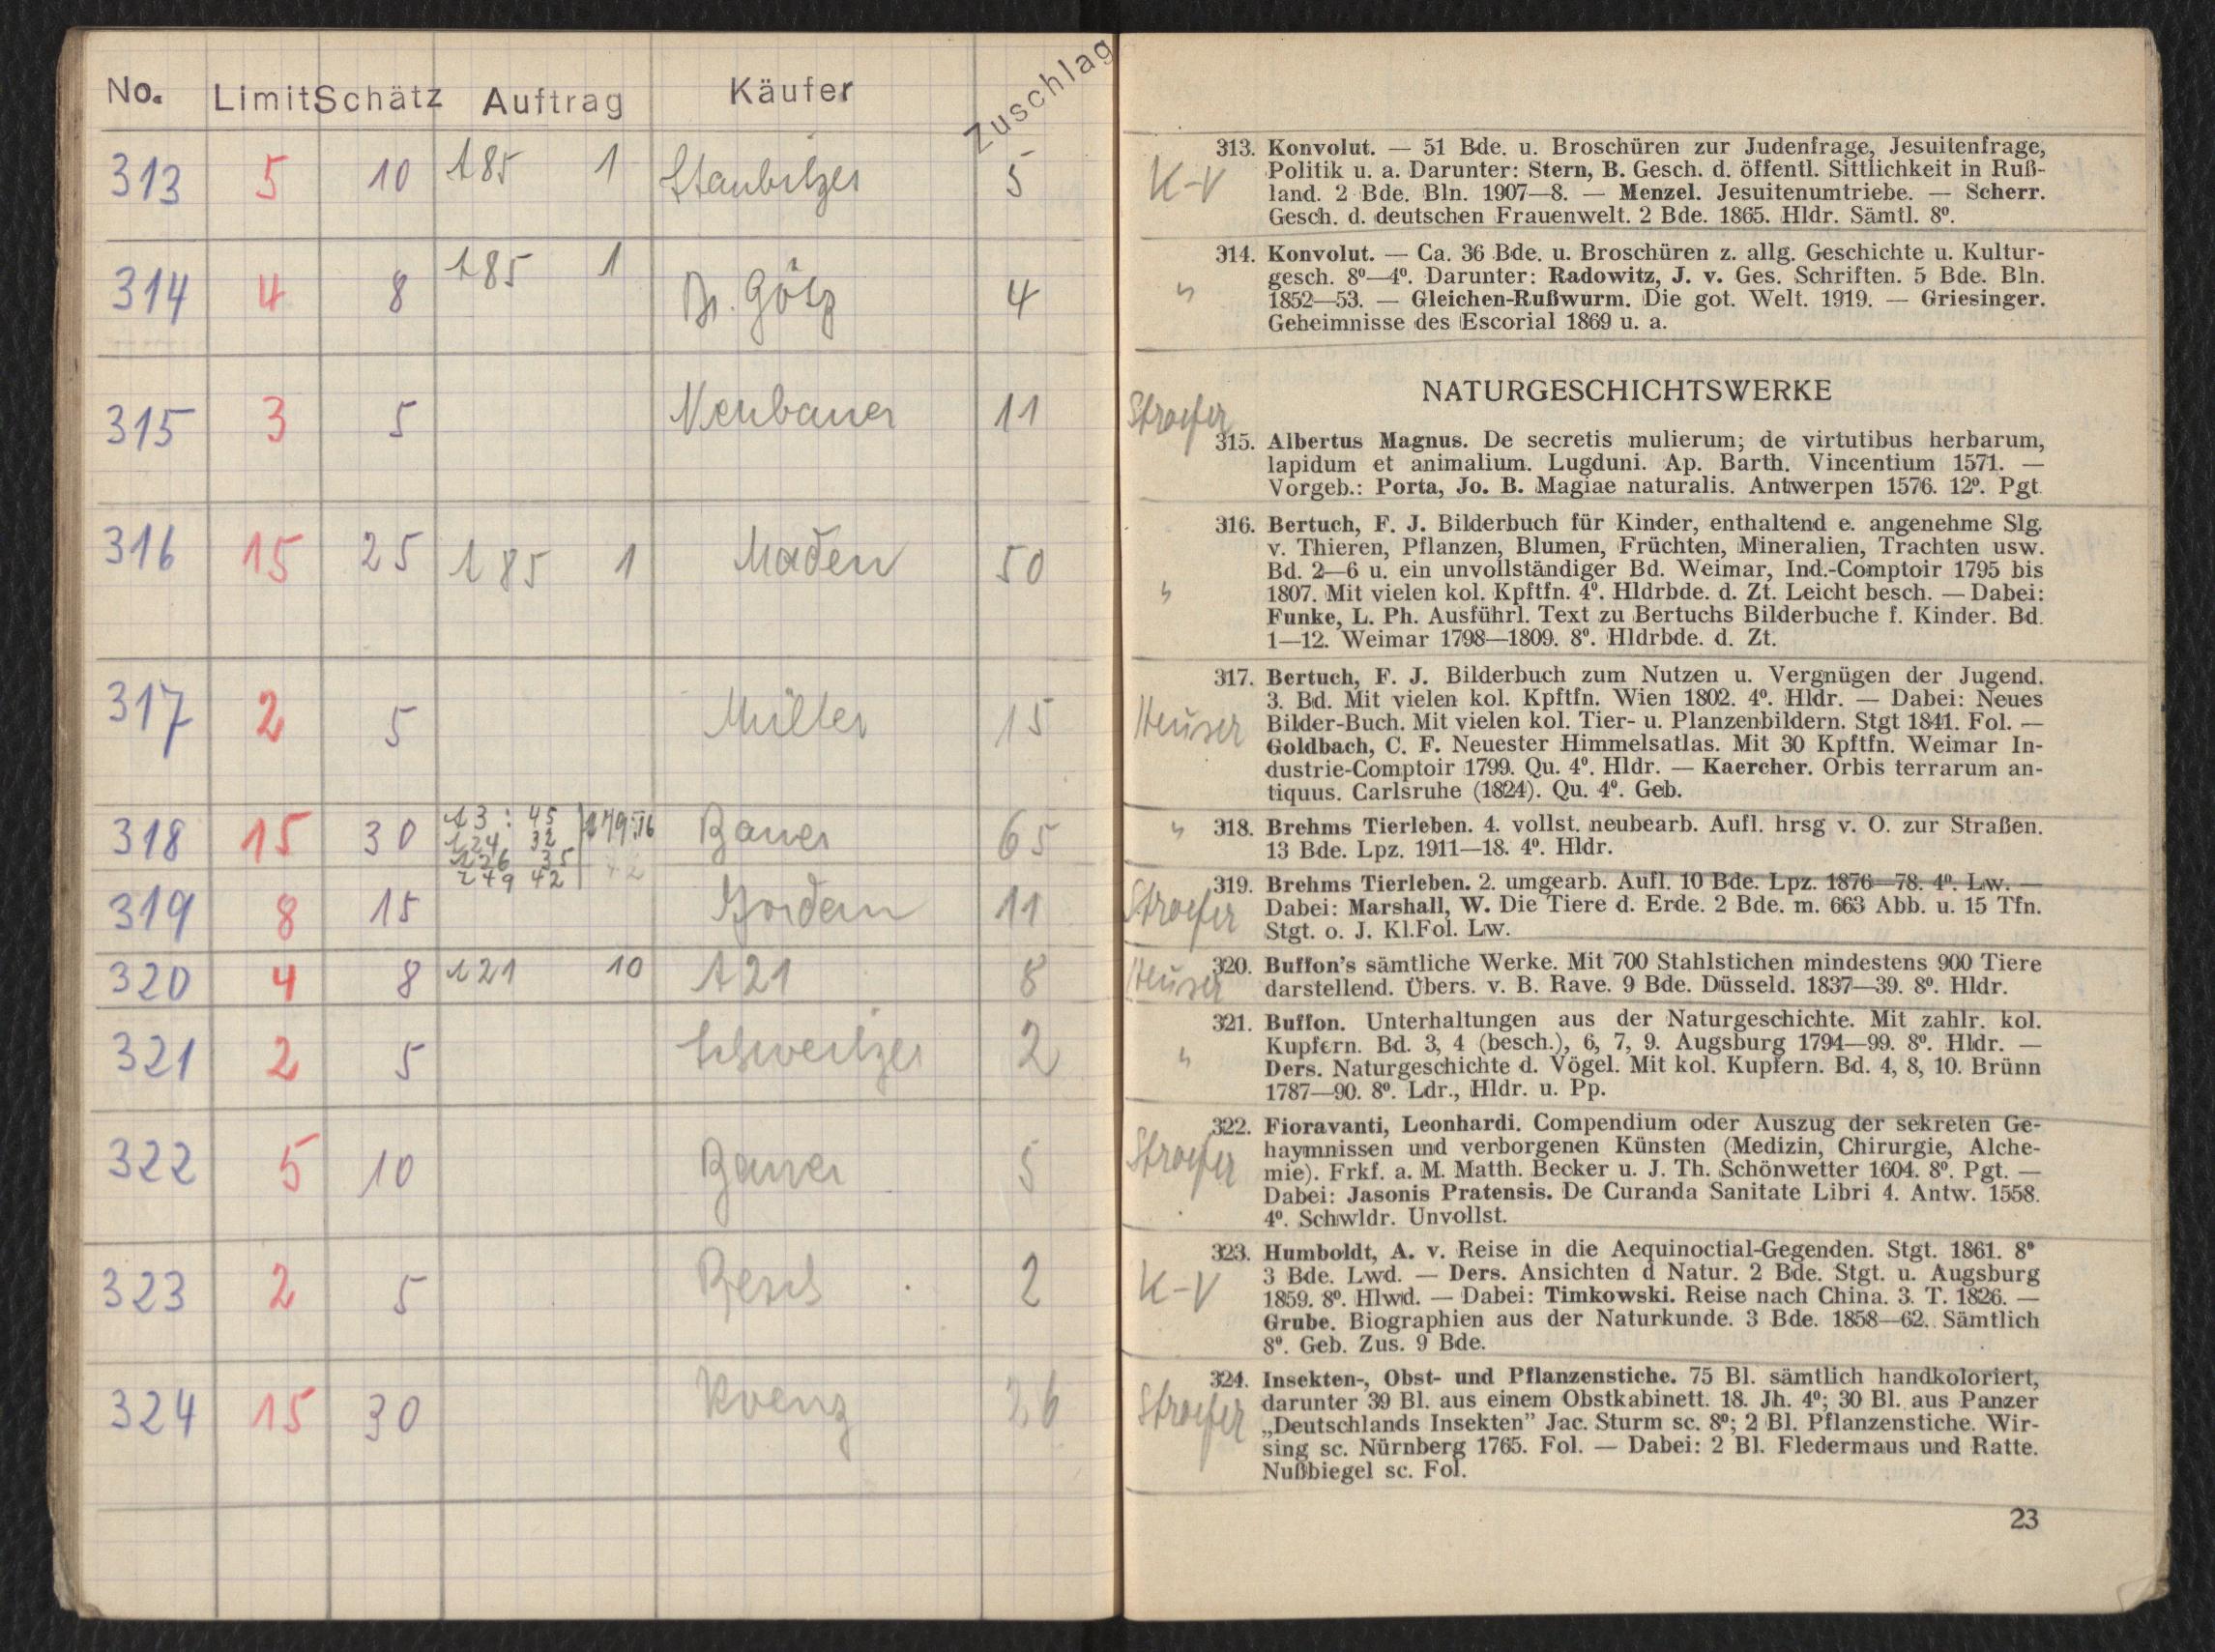 No. Limit Schätz Auftrag Käufer Zuschlag
313 5 10 185 1 Staubitzer 5
314 4 8 185 1 Dr. Götz 4
315 3 5 Neubauer 11
316 15 25 185 1 50
317 2 5 Müller 15
318 15 30 Bauer 65
319 8 15 11
320 4 8 121 10 121 8
321 2 5 Schweitzer 2
322 5 10 Bauer 5
323 2 5 2
324 15 30 26
313. Konvolut. — 51 Bde. u. Broschüren zur Judenfrage, Jesuitenfrage,
K-V Politik u. a. Darunter: Stern, B. Gesch. d. öffentl. Sittlichkeit in Ruß-
land. 2 Bde. Bln. 1907—8. — Menzel. Jesuitenumtriebe. — Scherr.
Gesch. d. deutschen Frauenwelt. 2 Bde. 1865. Hldr. Sämtl. 8º.
314. Konvolut. — Ca. 36 Bde. u. Broschüren z. allg. Geschichte u. Kultur-
gesch. 8º—4º. Darunter: Radowitz, J. v. Ges. Schriften. 5 Bde. Bln.
" 1852—53. — Gleichen-Rußwurm. Die got. Welt. 1919. — Griesinger.
Geheimnisse des Escorial 1869 u. a.
NATURGESCHICHTSWERKE
Stroefer
315. Albertus Magnus. De secretis mulierum; de virtutibus herbarum,
lapidum et animalium. Lugduni. Ap. Barth. Vincentium 1571. —
Vorgeb.: Porta, Jo. B. Magiae naturalis. Antwerpen 1576. 12º. Pgt.
316. Bertuch, F. J. Bilderbuch für Kinder, enthaltend e. angenehme Slg.
v. Thieren, Pflanzen, Blumen, Früchten, Mineralien, Trachten usw.
Bd. 2—6 u. ein unvollständiger Bd. Weimar, Ind.-Comptoir 1795 bis
" 1807. Mit vielen kol. Kpftfn. 4º. Hldrbde. d. Zt. Leicht besch. — Dabei:
Funke, L. Ph. Ausführl. Text zu Bertuchs Bilderbuche f. Kinder. Bd.
1—12. Weimar 1798—1809. 8º. Hldrbde. d. Zt.
317. Bertuch, F. J. Bilderbuch zum Nutzen u. Vergnügen der Jugend.
3. Bd. Mit vielen kol. Kpftfn. Wien 1802. 4º. Hldr. — Dabei: Neues
Heuser Bilder-Buch. Mit vielen kol. Tier- u. Planzenbildern. Stgt 1841. Fol. —
Goldbach, C. F. Neuester Himmelsatlas. Mit 30 Kpftfn. Weimar In-
dustrie-Comptoir 1799. Qu. 4º. Hldr. — Kaercher. Orbis terrarum an-
tiquus. Carlsruhe (1824). Qu. 4º. Geb.
" 318. Brehms Tierleben. 4. vollst. neubearb. Aufl. hrsg v. O. zur Straßen.
13 Bde. Lpz. 1911—18. 4º. Hldr.
319. Brehms Tierleben. 2. umgearb. Aufl. 10 Bde. Lpz. 1876—78. 4º. Lw. —
Stroefer Dabei: Marshall, W. Die Tiere d. Erde. 2 Bde. m. 663 Abb. u. 15 Tfn.
Stgt. o. J. Kl.Fol. Lw.
320. Buffon's sämtliche Werke. Mit 700 Stahlstichen mindestens 900 Tiere
Heuser darstellend. Übers. v. B. Rave. 9 Bde. Düsseld. 1837—39. 8º. Hldr.
321. Buffon. Unterhaltungen aus der Naturgeschichte. Mit zahlr. kol.
" Kupfern. Bd. 3, 4 (besch.), 6, 7, 9. Augsburg 1794—99. 8º. Hldr. —
Ders. Naturgeschichte d. Vögel. Mit kol. Kupfern. Bd. 4, 8, 10. Brünn
1787—90. 8º. Ldr., Hldr. u. Pp.
322. Fioravanti, Leonhardi. Compendium oder Auszug der sekreten Ge-
haymnissen und verborgenen Künsten (Medizin, Chirurgie, Alche-
Stroefer mie). Frkf. a. M. Matth. Becker u. J. Th. Schönwetter 1604. 8º. Pgt. —
Dabei: Jasonis Pratensis. De Curanda Sanitate Libri 4. Antw. 1558.
4º. Schwldr. Unvollst.
323. Humboldt, A. v. Reise in die Aequinoctial-Gegenden. Stgt. 1861. 8º
K-V 3 Bde. Lwd. — Ders. Ansichten d Natur. 2 Bde. Stgt. u. Augsburg
1859. 8º. Hlwd. — Dabei: Timkowski. Reise nach China. 3. T. 1826. —
Grube. Biographien aus der Naturkunde. 3 Bde. 1858—62. Sämtlich
8º. Geb. Zus. 9 Bde.
324. Insekten-, Obst- und Pflanzenstiche. 75 Bl. sämtlich handkoloriert,
Stroefer darunter 39 Bl. aus einem Obstkabinett. 18. Jh. 4º; 30 Bl. aus Panzer
„Deutschlands Insekten” Jac. Sturm sc. 8º; 2 Bl. Pflanzenstiche. Wir-
sing sc. Nürnberg 1765. Fol. — Dabei: 2 Bl. Fledermaus und Ratte.
Nußbiegel sc. Fol.
23